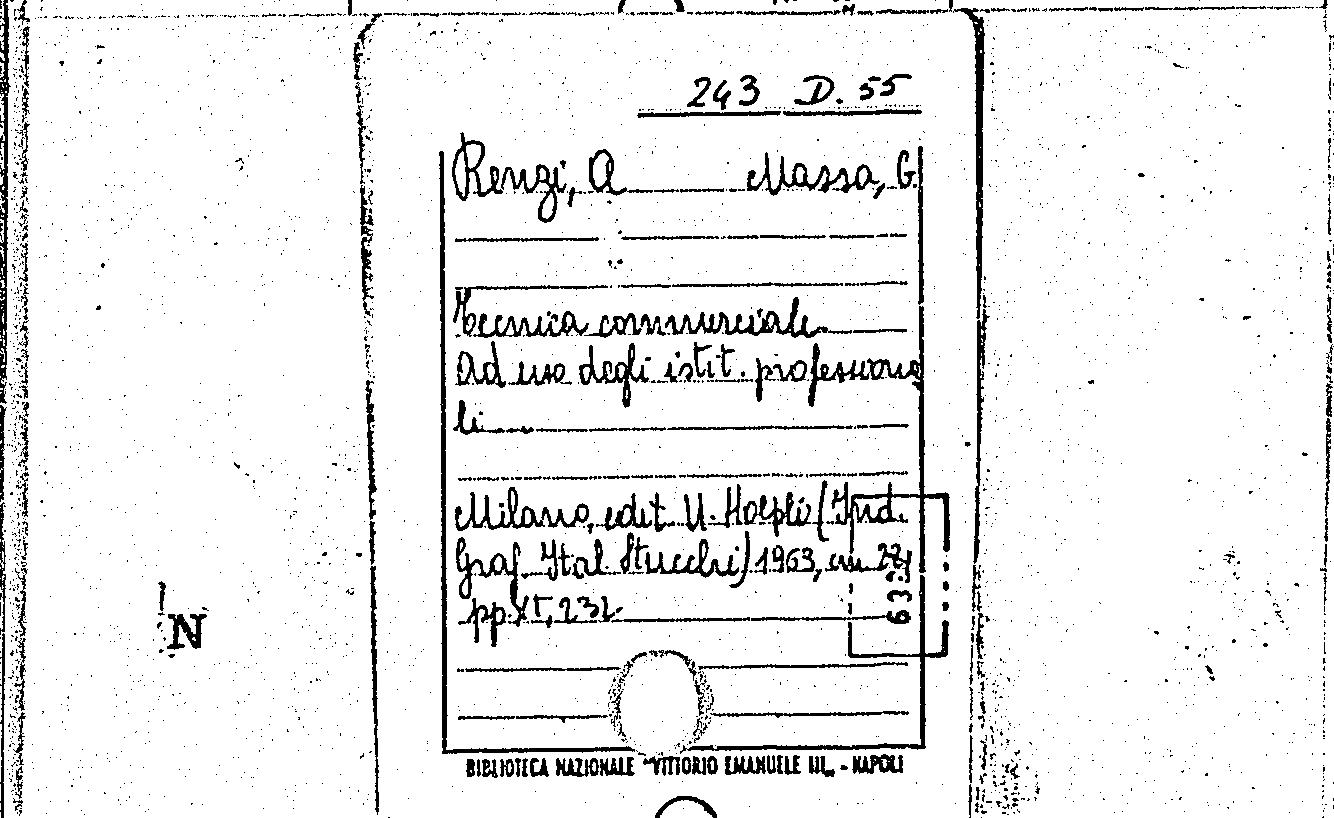 243 D. 55
Renzi, A Massa, G.
Tecnica commerciale.
Ad uso degli istit. professiona
li
Milano, edit. U. Hoepli (Ind.
Graf. Ital. Stucchi) 1963, cm 22,
pp. XI, 232.
63
N
BIBLIOTECA NAZIONALE "VITTORIO EMANUELE III„ - NAPOLI